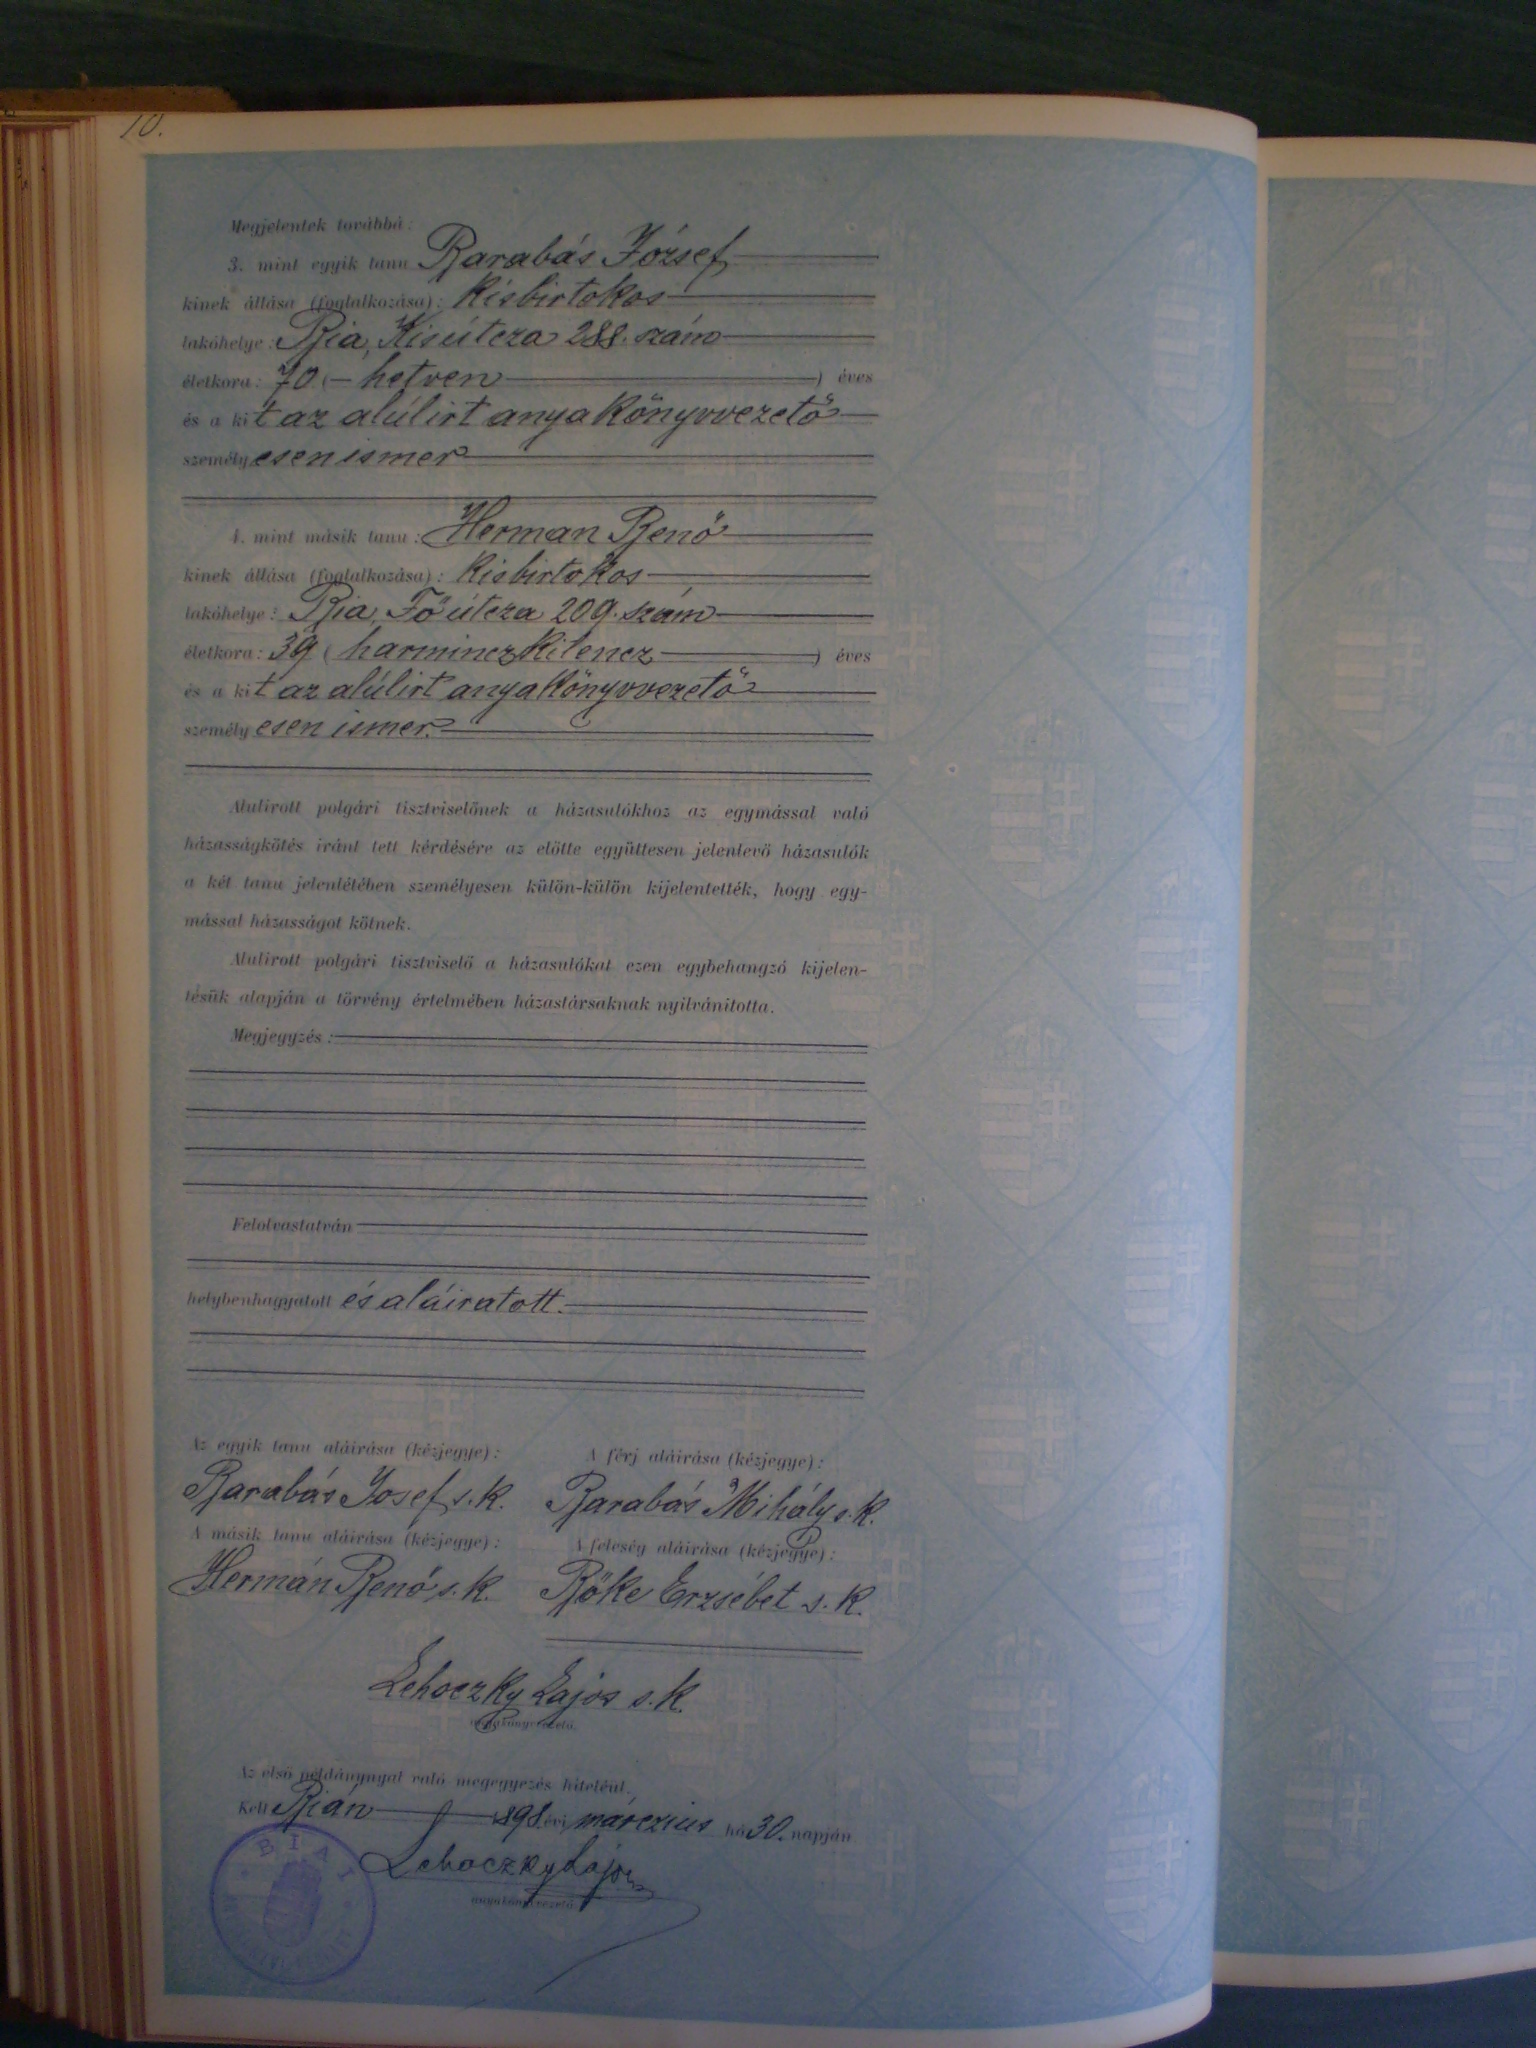 10.
Megjelentek továbbá:
3. mint egyik tanu Barabás József
kinek állása (foglalkozása): kisbirtokos
lakóhelye: Bia, Kisútcza 288. szám
életkora: 70 (– hetven ) éves
és a kit az alúlirt anyakönyvvezető
személyesen ismer
4. mint másik tanu: Herman Benő
kinek állása (foglalkozása): kisbirtokos
lakóhelye: Bia, Főútcza 209. szám
életkora: 39 ( harminczkilencz ) éves
és a kit az alúlirt anyakönyvvezető
személyesen ismer.
Alulirott polgári tisztviselőnek a házasulókhoz az egymással való
házasságkötés iránt tett kérdésére az előtte együttesen jelenlevő házasulók
a két tanu jelenlétében személyesen külön-külön kijelentették, hogy egy-
mással házasságot kötnek.
Alulirott polgári tisztviselő a házasulókat ezen egybehangzó kijelen-
tésük alapján a törvény értelmében házastársaknak nyilvánitotta.
Megjegyzés:
Felolvastatván
helybenhagyatott és aláiratott.
Az egyik tanu aláirása (kézjegye): A férj aláirása (kézjegye):
Barabás Josef s. k. Barabás Mihály s. k.
A másik tanu aláirása (kézjegye): A feleség aláirása (kézjegye):
Hermán Benő s. k. Bőke Erzsébet s. k.
Lehoczky Lajos s. k.
anyakönyvvezető.
Az első példánynyal való megegyezés hiteléül.
Kelt Bián 1898 évi márczius hó 30. napján
Lehoczky Lajos
anyakönyvvezető.
BIAI